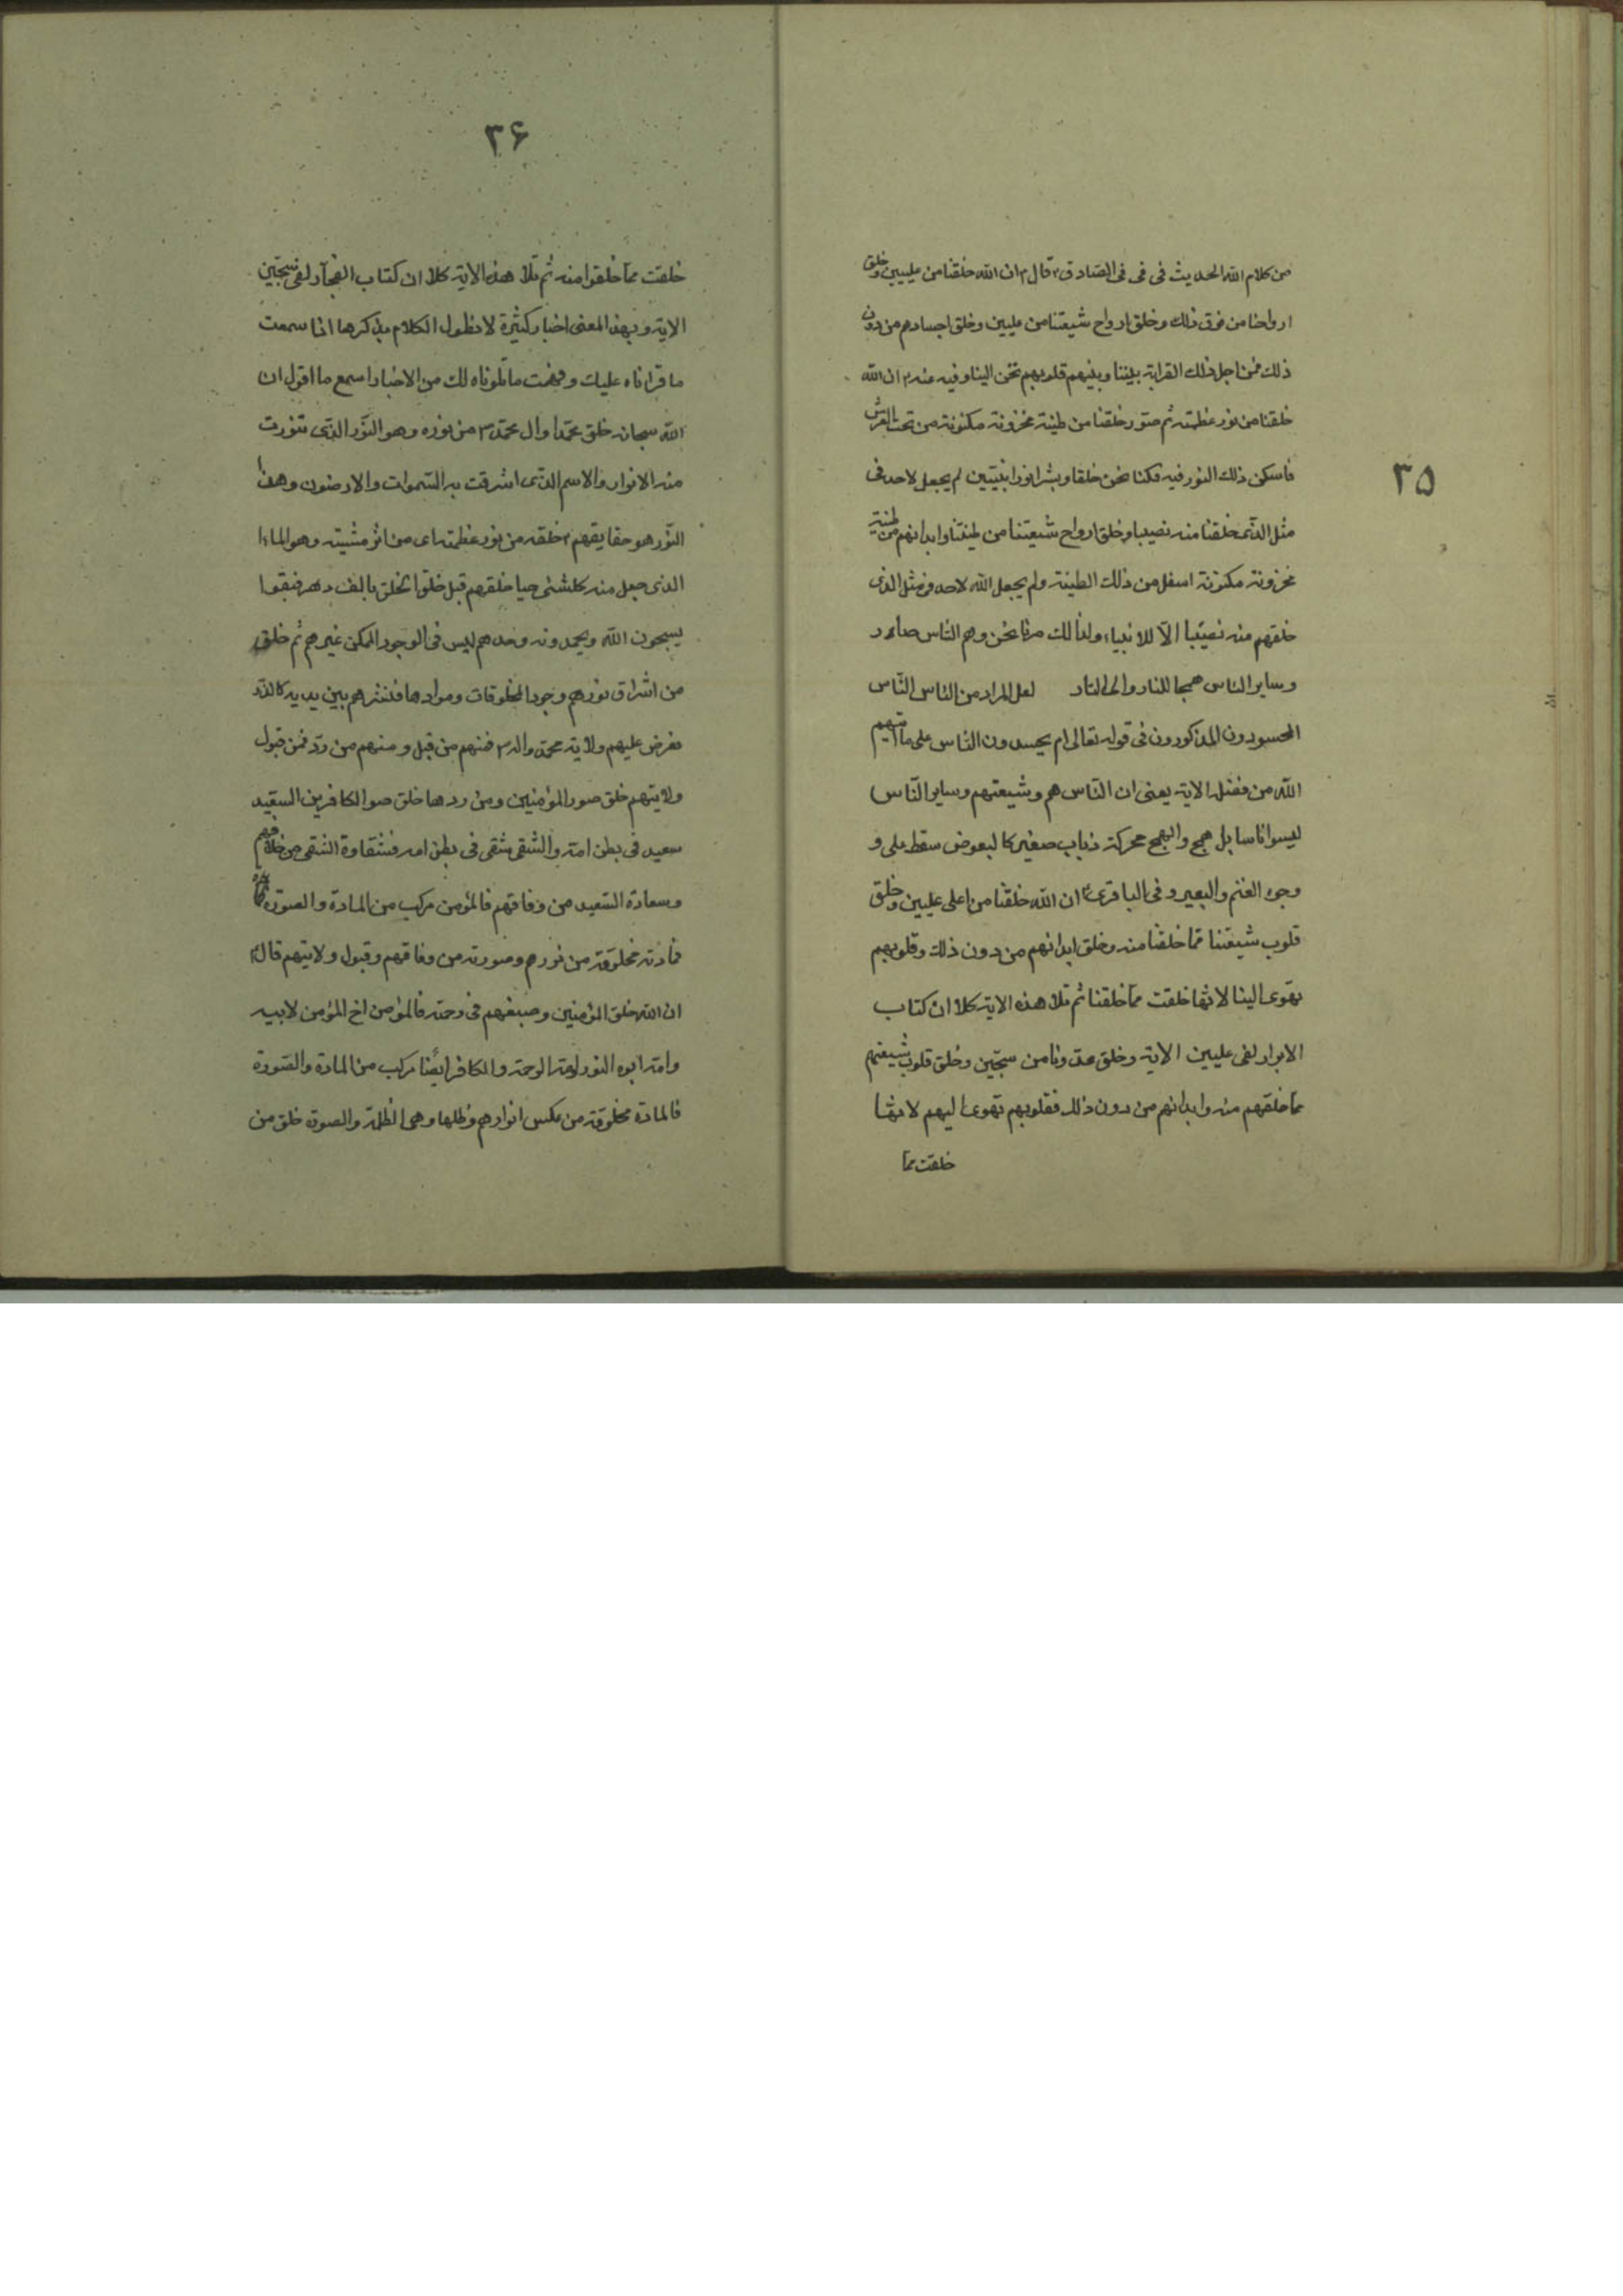 ٣٥
من كلام الله الحديث فى فى فى الصادق ع قال ع ان الله خلقنا من عليين وخلق
ارواحنا من فوق ذلك وخلق ارواح شيعتنا من عليين وخلق اجسادهم من دون
ذلك فمن اجل ذلك القرابة بيننا وبينهم قلوبهم تحن الينا وفيه عنه ع ان الله
خلقنا من نور عظمته ثم صور خلقنا من طينة مخزونة مكنونة من تحت العرش
فاسكن ذلك النور فيه فكنا نحن خلقا وبشرا نورانيين لم يجعل لاحد فى
مثل الذى خلقنا منه نصيبا وخلق ارواح شيعتنا من طينتنا وابدانهم من طينة
مخزونة مكنونة اسفل من ذلك الطينة ولم يجعل الله لاحد فى مثل الذى
خلقهم منه نصيبا الا للانبياء ولذلك صرنا نحن وهم الناس صار
وساير الناس همجا للنار والى النار لعل المراد من الناس الناس
المحسودون المذكورون فى قوله تعالى ام يحسدون الناس على ما اتيهم
الله من فضله الاية يعنى ان الناس هم وشيعتهم وساير الناس
ليسوا ناسا بل همج والهمج محركة ذباب صغير كالبعوض سقط على و
وجوه الغنم والبعير وفى الباقرى ع ان الله خلقنا من اعلى عليين وخلق
قلوب شيعتنا مما خلقنا منه وخلق ابدانهم من دون ذلك وقلوبهم
تهوى الينا لانها خلقت مما خلقنا ثم تلا هذه الاية كلا ان كتاب
الابرار لفى عليين الاية وخلق عدونا من سجين وخلق قلوب شيعتهم
مما خلقهم منه وابدانهم من دون ذلك فقلوبهم تهوى اليهم لانها
خلقت مما
٣۶
خلقت مما خلقوا منه ثم تلا هذه الاية كلا ان كتاب الفجار لفى سجين
الاية وبهذا المعنى اخبار كثيرة لا نطول الكلام بذكرها اذا سمعت
ما قراناه عليك وفهمت ما تلوناه لك من الاخبار اسمع ما اقول ان
الله سبحانه خلق محمدا وال محمد ص من نوره وهو النور الذى تنورت
منه الانوار والاسم الذى اشرقت به السموات والارضون وهذا
النور هو حقايقهم ع خلقه من نور عظمته اى من اثر مشيته وهو الماء
الذى جعل منه كلشئ حيا خلقهم قبل خلق الخلق بالف دهر فبقوا
يسبحون الله ويحمدونه وحدهم ليس فى الوجود الممكن غيرهم ثم خلق
من اشراق نورهم وجود المخلوقات وموادها فنثرهم بين يديه كالذر
فعرض عليهم ولاية محمد واله ص فمنهم من قبل ومنهم من رد فمن قبول
ولايتهم خلق صور المؤمنين ومن ردها خلق صور الكافرين السعيد
سعيد فى بطن امه والشقى شقى فى بطن امه فشقاوة الشقى من خلافهم
وسعادة السعيد من وفاقهم فالمؤمن مركب من المادة والصورة
فمادته مخلوقة من نورهم وصورته من وفاقهم وقبول ولايتهم قال ع
ان الله خلق المؤمنين وصبغهم فى رحمته فالمؤمن اخ المؤمن لابيه
وامه ابوه النور وامه الرحمة والكافر ايضا مركب من المادة والصورة
فالمادة مخلوقة من عكس انوارهم وظلها وهى الظلمة والصورة خلق من